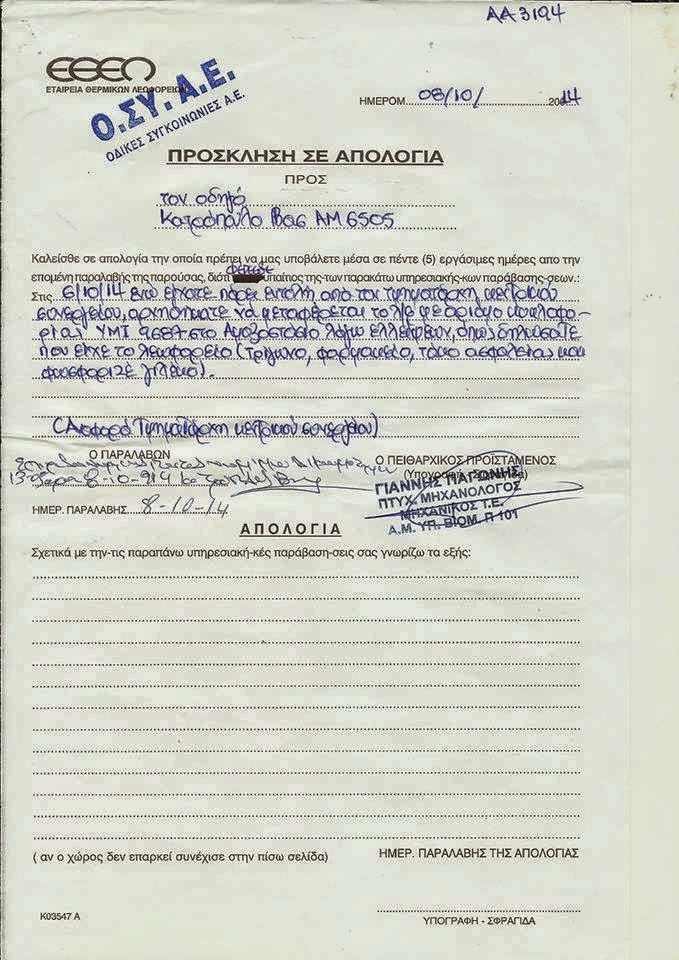 ΑΑ3194
ΕΘΕΛ
ΕΤΑΙΡΕΙΑ ΘΕΡΜΙΚΩΝ ΛΕΩΦΟΡΕΙΩΝ
Ο.ΣΥ.Α.Ε.
ΟΔΙΚΕΣ ΣΥΓΚΟΙΝΩΝΙΕΣ Α.Ε.
ΗΜΕΡΟΜ. 08/10/ 2014
ΠΡΟΣΚΛΗΣΗ ΣΕ ΑΠΟΛΟΓΙΑ
ΠΡΟΣ
τον οδηγό
Βασ ΑΜ 6505
Καλείσθε σε απολογία την οποία πρέπει να μας υποβάλετε μέσα σε πέντε (5) εργάσιμες ημέρες απο την
επομένη παραλαβής της παρούσας, διότι φέρεσθε υπαίτιος της-των παρακάτω υπηρεσιακής-κων παράβασης-σεων.:
Στις 6/10/14 ενώ είχατε πάρει εντολή από τον τμηματάρχη κεντρικού
συνεργείου, αρνηθήκατε να μεταφέρεται το λ/φ με αριθμό κυκλοφο-
ρίας ΥΜΙ 9687 στο Αμαξοστάσιο λόγω ελλείψεων, όπως δηλώσατε
που είχε το λεωφορείο (τρίγωνο, φαρμακείο, τάκο ασφαλείας και
φωσφοριζέ γιλέκο).
(Αναφορά Τμηματάρχη κεντρικού συνεργείου)
Ο ΠΑΡΑΛΑΒΩΝ
Ο ΠΕΙΘΑΡΧΙΚΟΣ ΠΡΟΪΣΤΑΜΕΝΟΣ
(Υπογραφή - Σφραγίδα)
ΓΙΑΝΝΗΣ ΓΙΑΓΩΝΗΣ
ΠΤΥΧ. ΜΗΧΑΝΟΛΟΓΟΣ
ΜΗΧΑΝΙΚΟΣ Τ.Ε.
Α.Μ. ΥΠ. ΒΙΟΜ. Π 101
ΗΜΕΡ. ΠΑΡΑΛΑΒΗΣ 8-10-14
ΑΠΟΛΟΓΙΑ
Σχετικά με την-τις παραπάνω υπηρεσιακή-κές παράβαση-σεις σας γνωρίζω τα εξής:
( αν ο χώρος δεν επαρκεί συνέχισε στην πίσω σελίδα)
ΗΜΕΡ. ΠΑΡΑΛΑΒΗΣ ΤΗΣ ΑΠΟΛΟΓΙΑΣ
Κ03547 Α
ΥΠΟΓΡΑΦΗ - ΣΦΡΑΓΙΔΑ